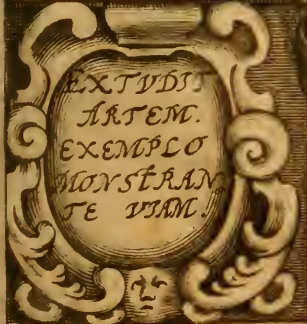 EXTVDIT
ARTEM.
EXEMPLO
MONSTRAN
TE VIAM.